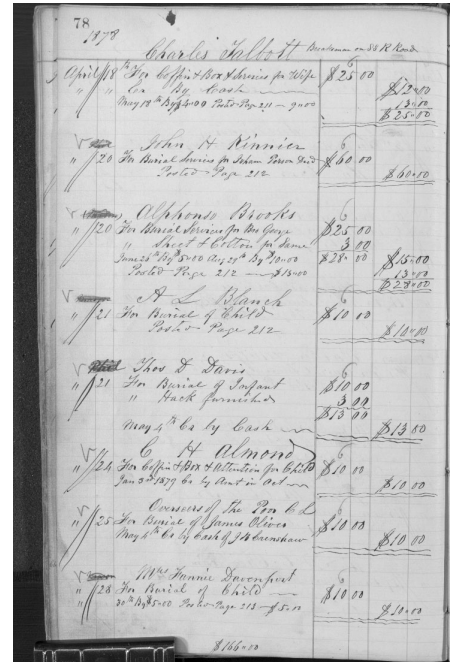 78
1878
Charles Talbott Breaksman on SS R Road
April 18th For Coffin & Box & Services for Wife $25 00
" " Cr By Cash $12.00
May 18th By $4.00 Posted Page 211 — 9.00 13.00
$25.00
John H Kinnier
" 20 For Burial Services for Person Dead $60 00
Posted Page 212 $60.00
Alphonso Brooks
" 20 For Burial Services for Bro George $25 00
" Sheet & Cotton for Same 3 00
June 26th By $5.00 Aug 29th By $10.00 $28 00 $15.00
Posted Page 212 — $13.00 13.00
$28.00
A L Blanch
" 21 For Burial of Child $10 00
Posted Page 212 $10.00
Thos D Davis
" 21 For Burial of Infant $10 00
" Hack furnished 3 00
$13 00
May 4th Cr by Cash $13 00
C H Almond
" 24 For Coffin & Box & Attention for Child $10 00
Jan 3rd 1879 Cr by Amt in Act $10 00
Overseers of the Poor C L
" 25 For Burial of James Oliver $10 00
May 4th Cr by Cash of J H Crenshaw $10 00
Mrs Fannie Davenport
" 28 For Burial of Child $10 00
" 30th By $5.00 Posted Page 213 — $5.00 $10.00
$166.00